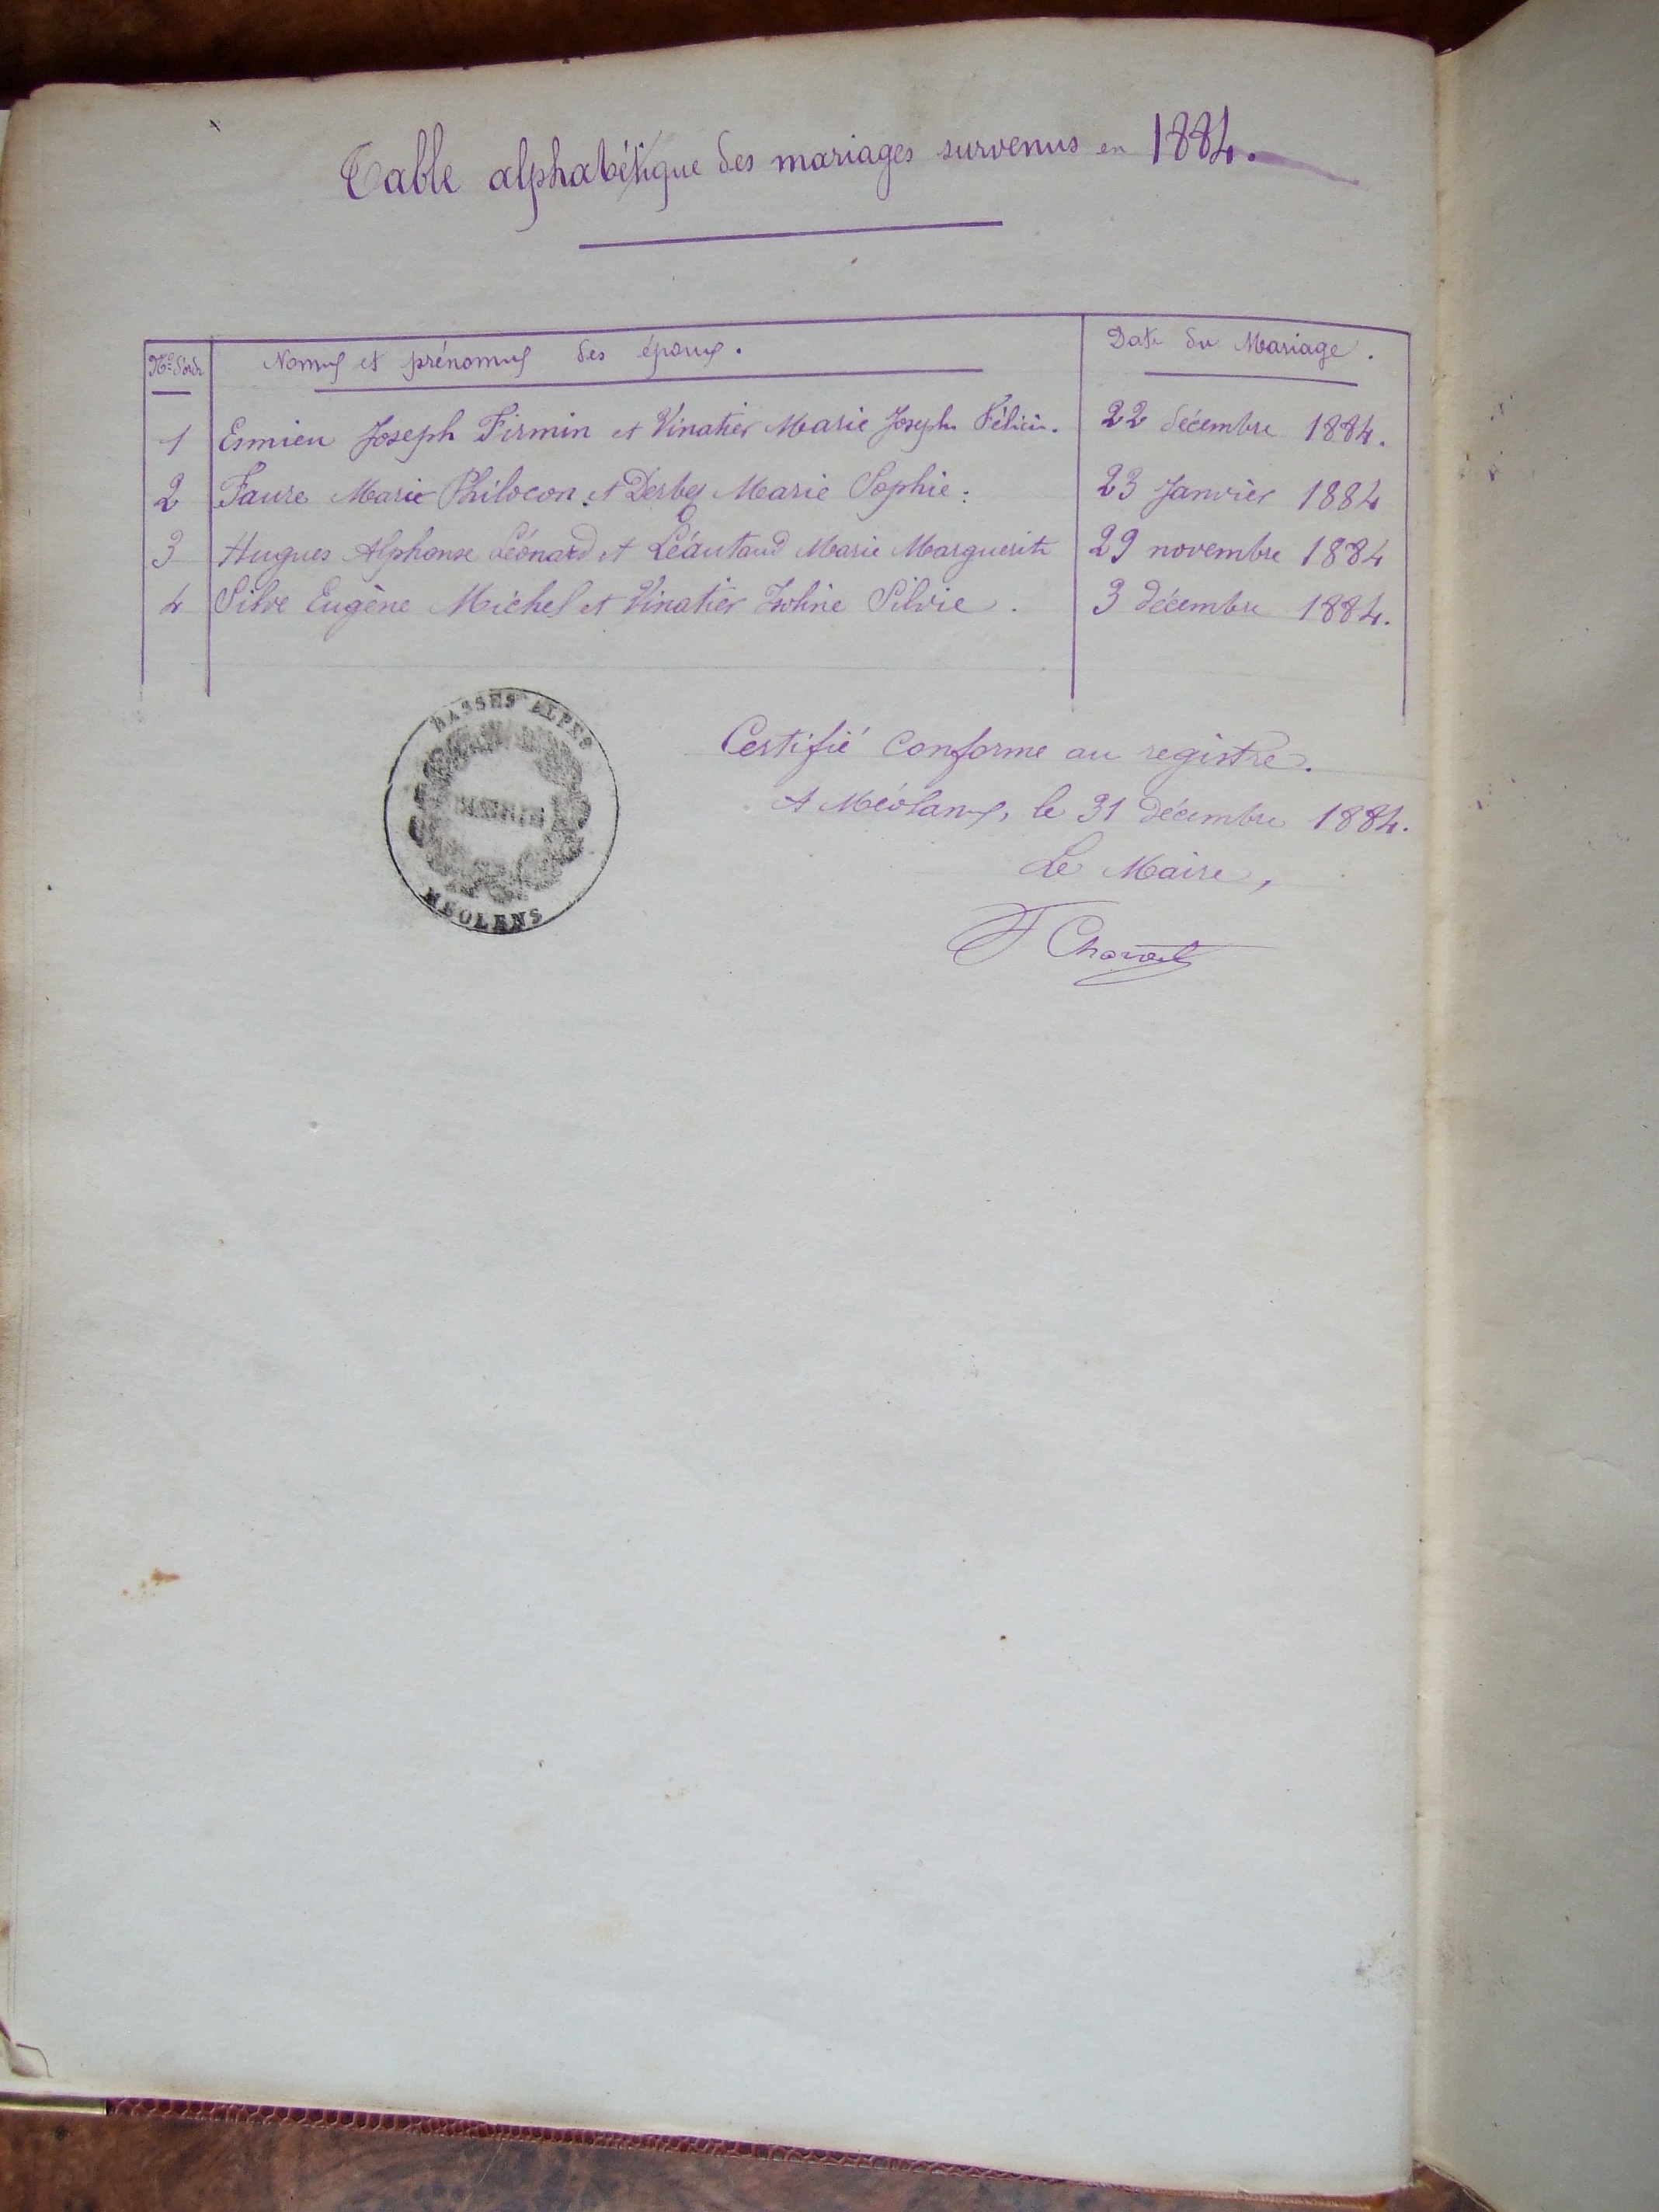 Table alphabétique des mariages survenus en 1884.
Nos d'ordr Noms et prénoms des époux. Date du Mariage.
1 Esmieu Joseph Firmin et Vinatier Marie Joseph Félicie. 22 décembre 1884.
2 Faure Marie Philocon et Derbez Marie Sophie. 23 Janvier 1884
3 Hugues Alphonse Léonard et Léautaud Marie Marguerite 29 novembre 1884
4 Silve Eugène Michel et Vinatier Isoline Silvie. 3 décembre 1884.
BASSES ALPES
MAIRIE
MEOLANS
Certifié conforme au registre.
A Méolans, le 31 décembre 1884.
Le Maire,